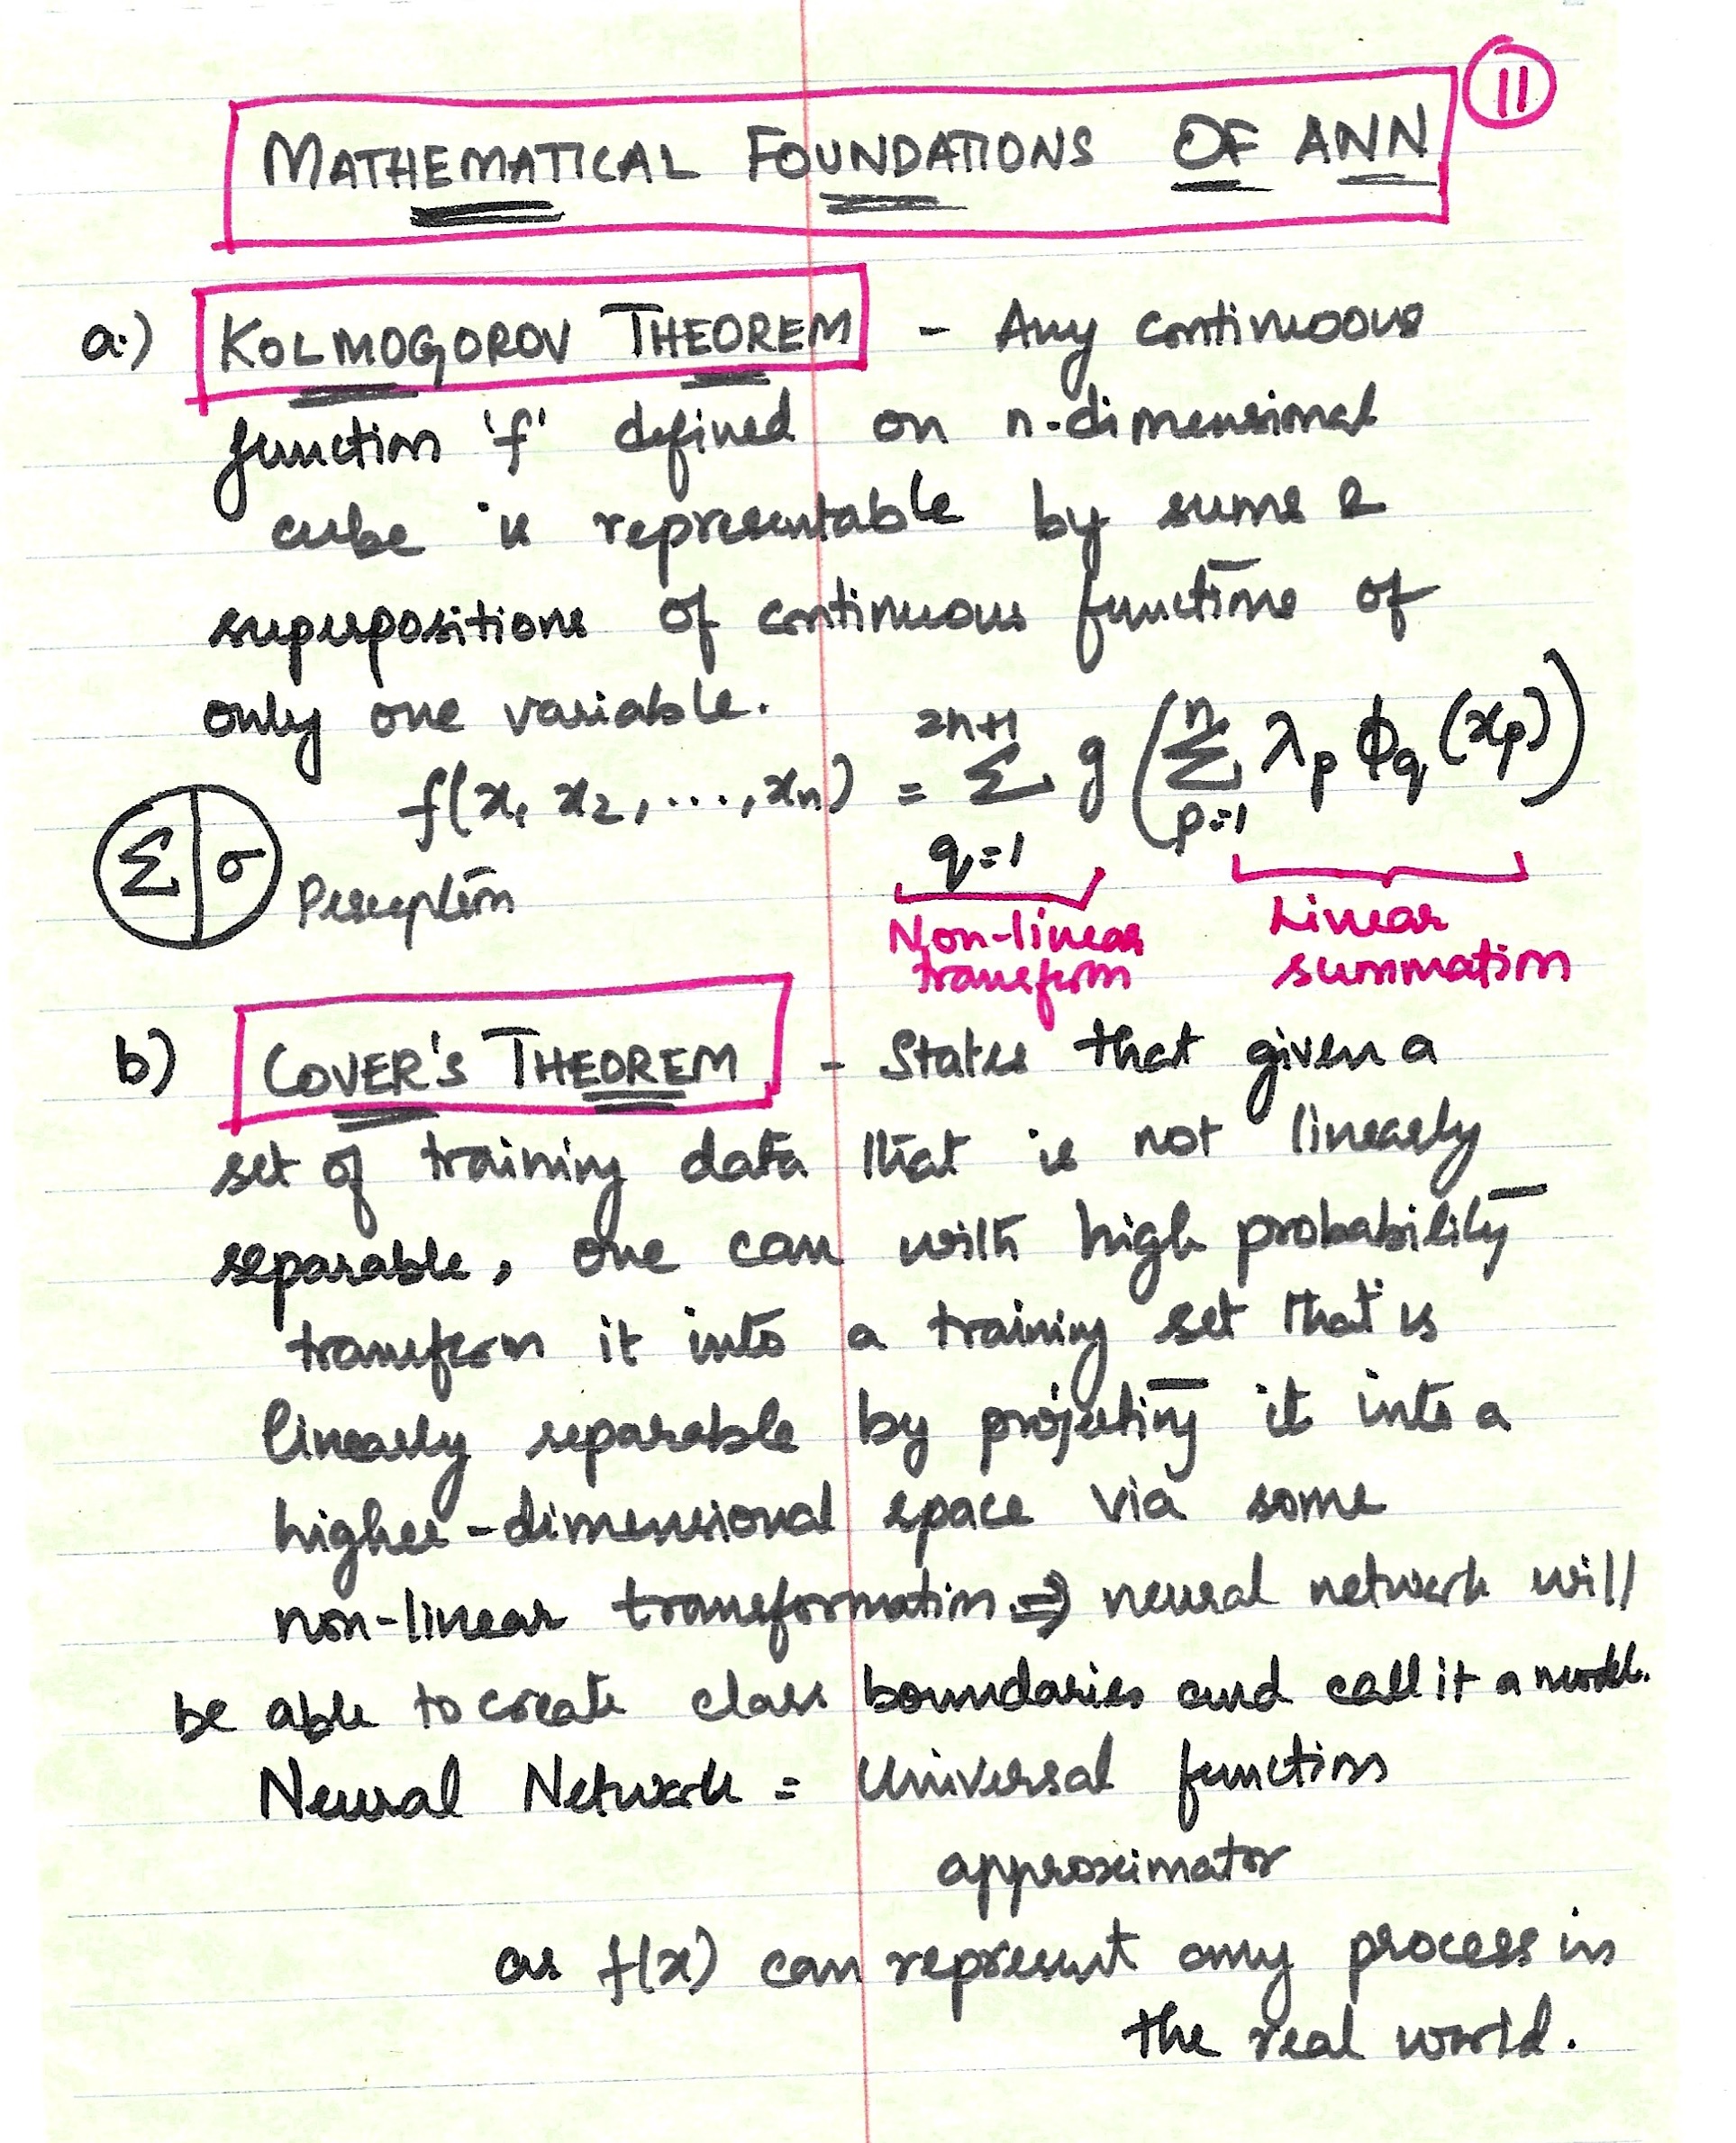 11
MATHEMATICAL FOUNDATIONS OF ANN
a.) KOLMOGOROV THEOREM - Any continuous
function 'f' defined on n-dimensional
cube is representable by sums &
superpositions of continuous functions of
only one variable.
f(x₁ x₂, ..., xₙ) = Σ_{q=1}^{2n+1} g (Σ_{p=1}^{n} λ_p ϕ_q (x_p))
Σ | σ Perceptron
Non-linear transform
Linear summation
b) COVER'S THEOREM - States that given a
set of training data that is not linearly
separable, one can with high probability
transform it into a training set that is
linearly separable by projecting it into a
higher-dimensional space via some
non-linear transformation. ⇒ neural network will
be able to create class boundaries and call it a model.
Neural Network = Universal function
approximator
as f(x) can represent any process in
the real world.